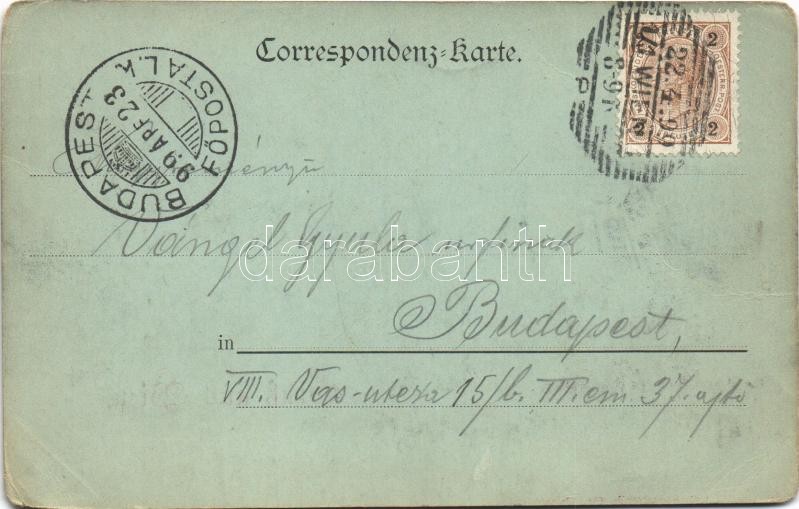 Correspondenz-Karte.
BUDAPEST FŐPOSTA L.K.
99 APR 23
1/1 WIEN
22.4.99
8-9 V
2
2 2
Vángel Gyula urfinak
darabanth
in Budapest,
VIII. Vas-utcza 15/b. III. em. 37. ajtó